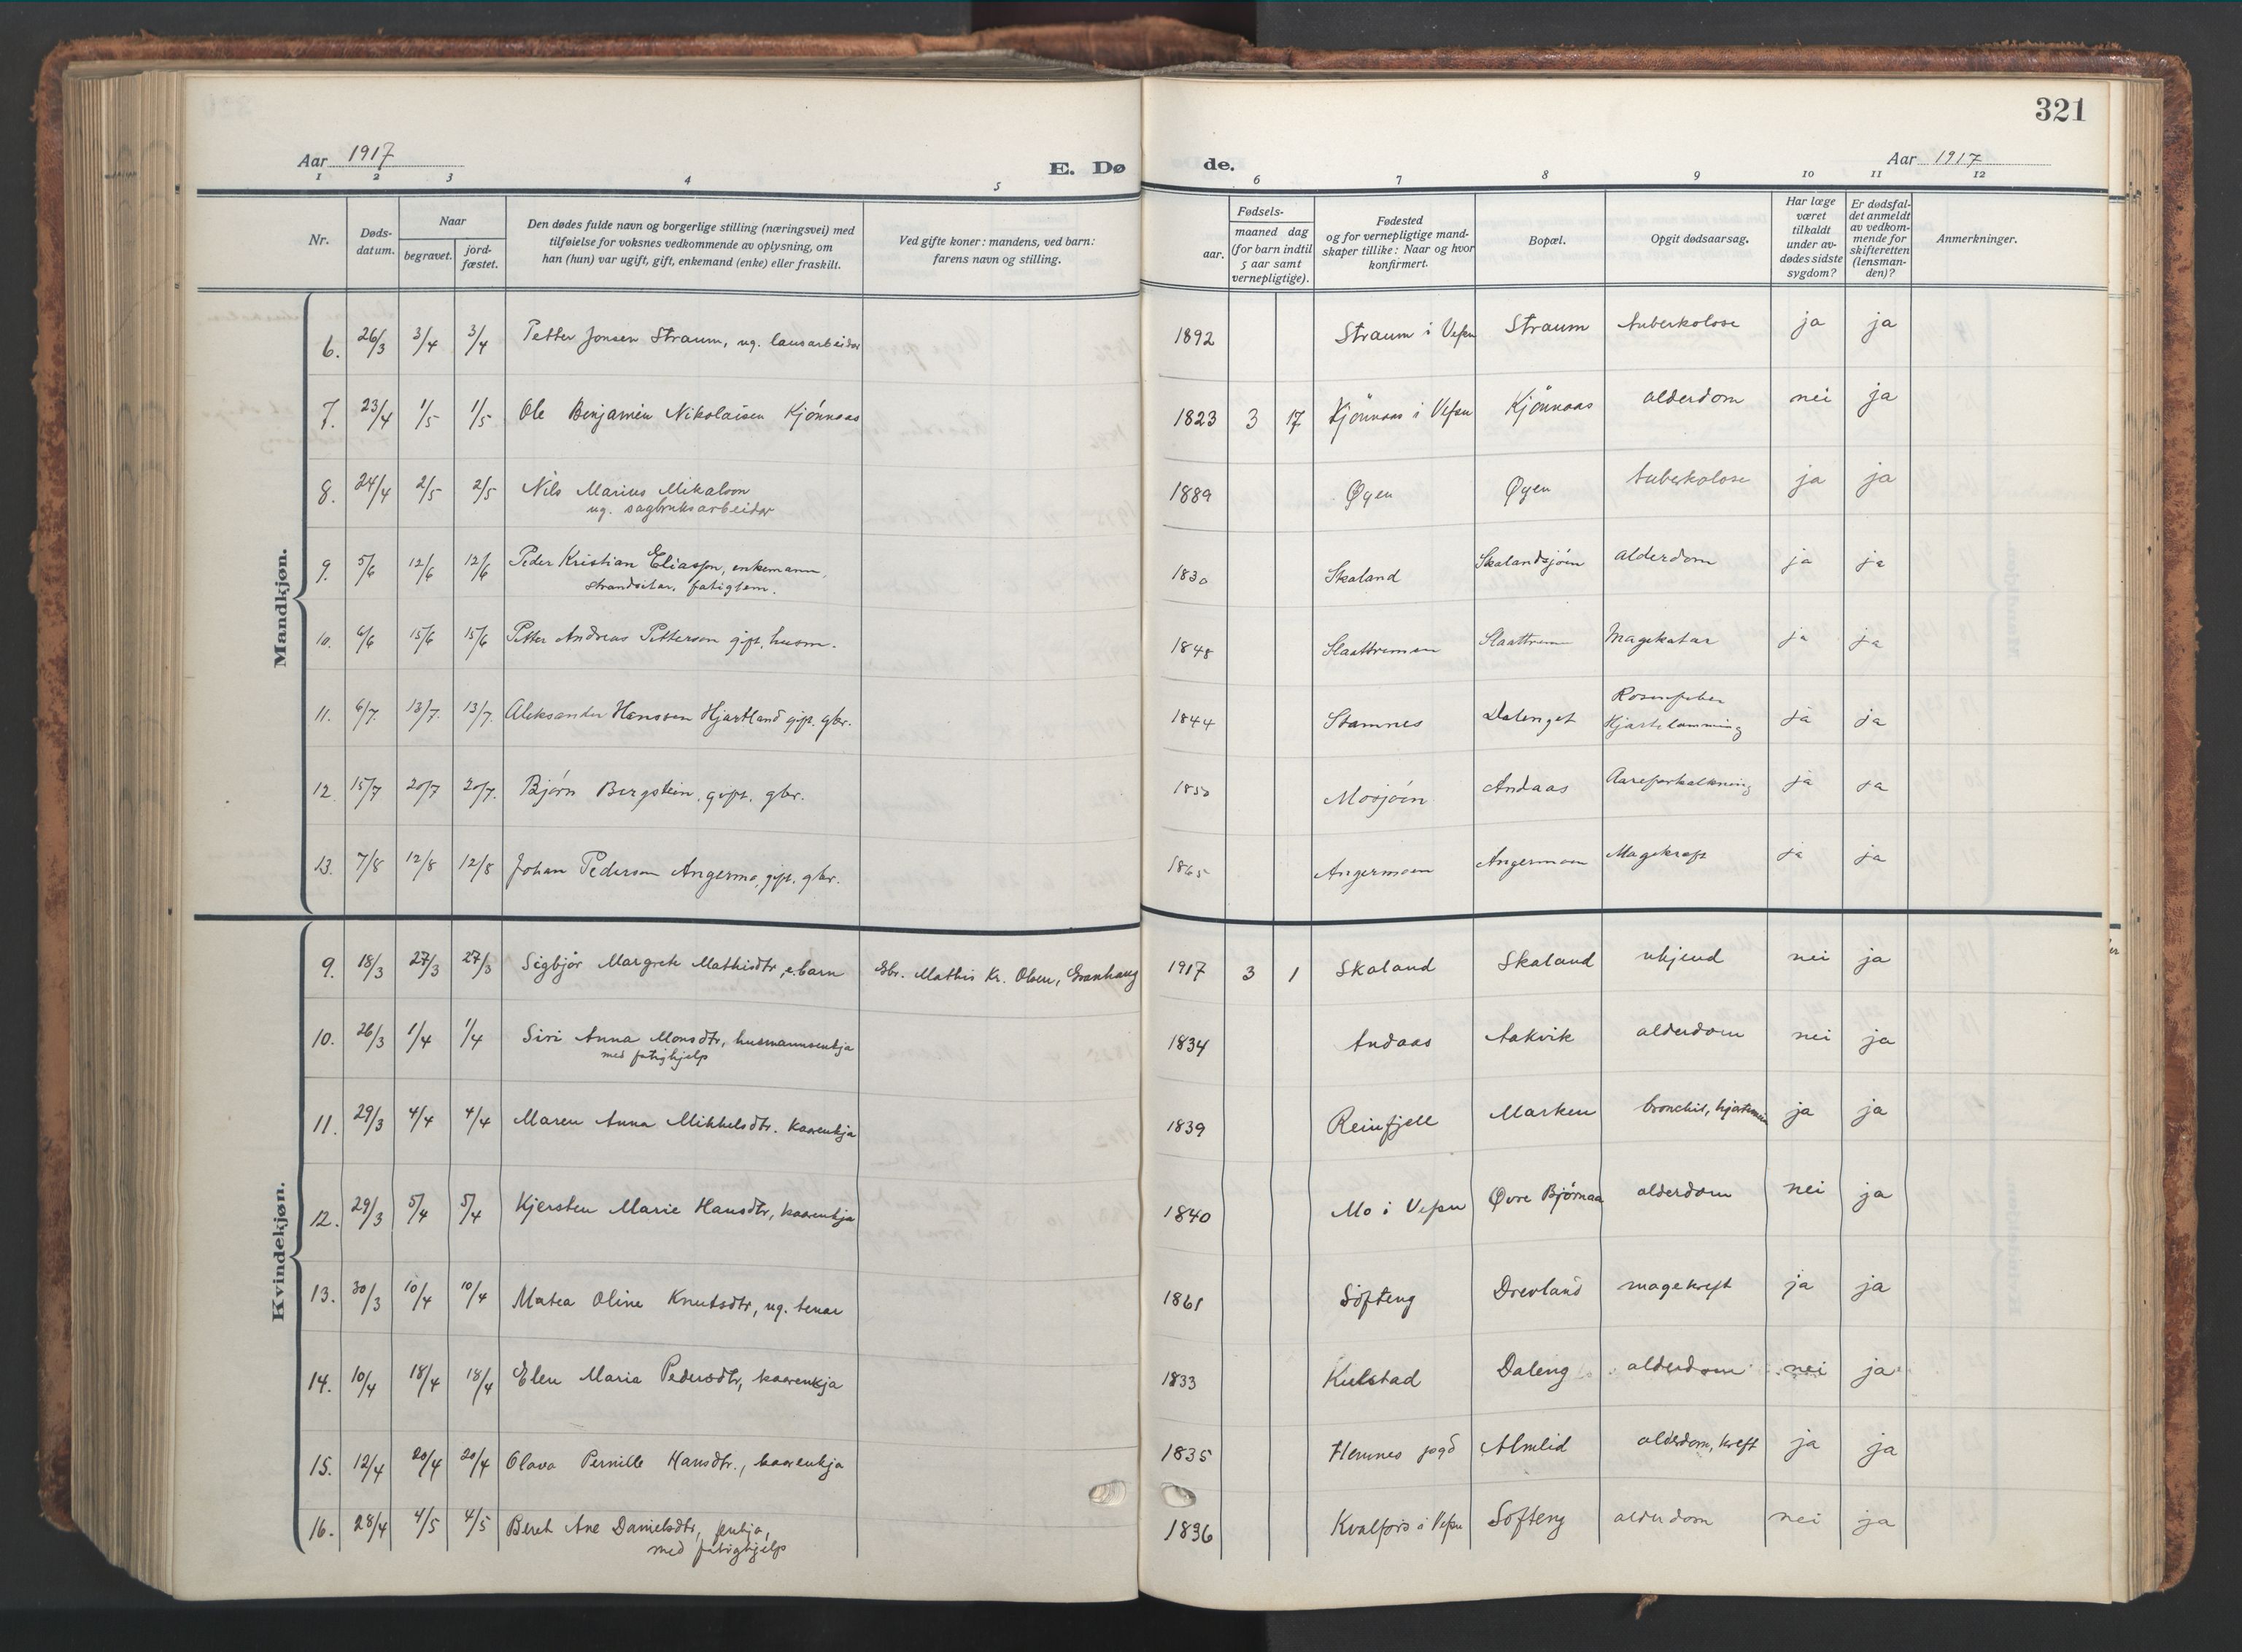 321
Aar 1917
E. Dø
de.
Aar 1917
1 2 3 4 5 6 7 8 9 10 11 12
Nr.
Døds-
datum.
Naar
begravet.
jord-
fæstet.
Den dødes fulde navn og borgerlige stilling (næringsvei) med
tilføielse for voksnes vedkommende av oplysning, om
han (hun) var ugift, gift, enkemand (enke) eller fraskilt.
Ved gifte koner: mandens, ved barn:
farens navn og stilling.
Fødsels-
aar.
maaned dag
(for barn indtil
5 aar samt
vernepligtige).
Fødested
og for vernepligtige mand-
skaper tillike: Naar og hvor
konfirmert.
Bopæl.
Opgit dødsaarsag.
Har læge
været
tilkaldt
under av-
dødes sidste
sygdom?
Er dødsfal-
det anmeldt
av vedkom-
mende for
skifteretten
(lensman-
den)?
Anmerkninger.
Mandkjøn.
6. 26/3 3/4 3/4 Petter Jonsen Straum, ug. lausarbeider 1892 Straum i Vefsn Straum tuberkolose ja ja
7. 23/4 1/5 1/5 Ole Benjamin Nikolaisen Kjönnaas 1823 3 17 Kjönnaas i Vefsn Kjönnaas alderdom nei ja
8. 24/4 2/5 2/5 Nils Marius Mikalson 1889 Øyen Øyen tuberkolose ja ja
ug. sagbruksarbeider
9. 5/6 12/6 12/6 Peder Kristian Eliasson, enkemann, 1830 Skaland Skalandsjöen alderdom ja ja
strandsitar, fatiglem.
10. 6/6 15/6 15/6 Petter Andreas Petterson gift, husm. 1848 Slaattremen Magekatar ja ja
11. 6/7. 13/7. 13/7. Aleksander Hanssen Hjartland gift. gbr. 1844 Stamnes Dalenget Rosenfeber
Hjartelamming ja ja
12. 15/7 20/7 20/7. Bjórn Bergstein, gift, gbr. 1850 Mosjóen Andaas Aareforkalkning ja ja
13. 7/8 12/8 12/8 Johan Pederson Angermo, gift. gbr. 1865 Angermoen Angermoen Magekraft ja ja
Kvindekjøn.
9. 18/3 27/3 27/3 Sigbjör Margrete Mathisdtr, e. barn Gbr. Mathis Kr. Olsen, Granhaug 1917 3 1 Skaland Skaland ukjend nei ja
10. 26/3 1/4 1/4 Siri Anna Monsdtr, husmannsenkja 1834 Andaas Aakvik alderdom nei ja
med fatighjelp
11. 29/3 4/4 4/4 Maren Anna Mikkelsdtr. kaarenkja 1839 Reinfjell Marken bronchit, ja ja
12. 29/3 5/4 5/4 Kjersten Marie Hansdtr, kaarenkja 1840 Mo i Vefsn Øvre Björnaa alderdom nei ja
13. 30/3 10/4 10/4 Matea Oline Knutsdtr, ug. tenar 1861 Söfteng Drevland magekreft ja ja
14. 10/4 18/4 18/4 Elen Maria Pedersdtr, kaarenkja 1833 Kulstad Daleng alderdom nei ja
15. 12/4 20/4 20/4 Olava Pernille Hansdtr., kaarenkja 1835 Hemnes sogd Almlid alderdom, kreft ja ja
16. 28/4 4/5 4/5 Beret Ane Danielsdtr, enkja, 1836 Kvalfors i Vefsn Söfteng alderdom nei ja
med fatighjelp